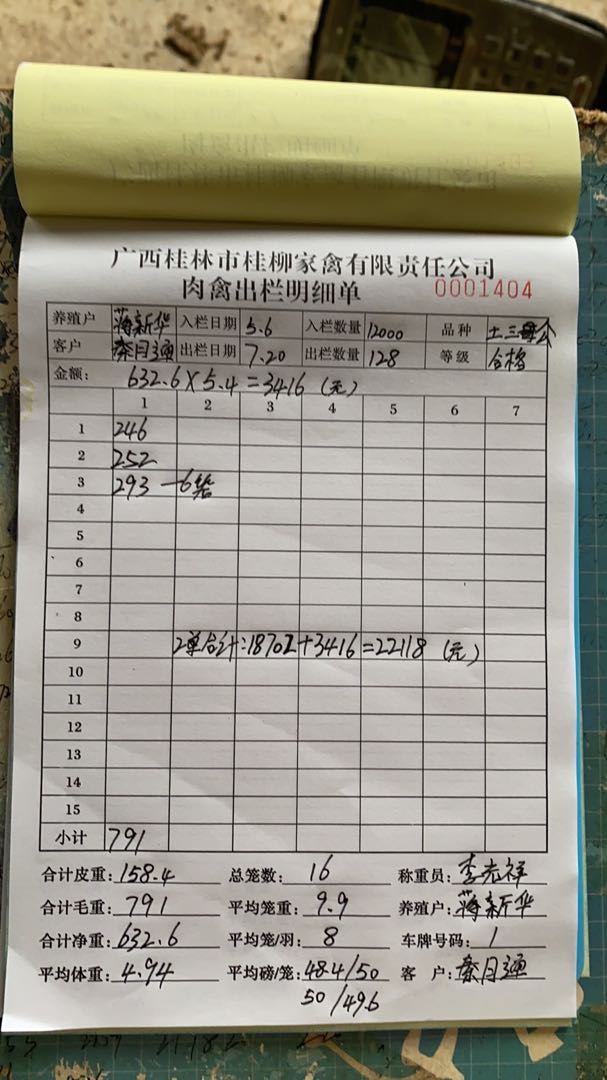 广西桂林市桂柳家禽有限责任公司
肉禽出栏明细单 0001404
养殖户 蒋新华 入栏日期 5.6 入栏数量 12000 品种 土三公
客户 秦月通 出栏日期 7.20 出栏数量 128 等级 合格
金额: 632.6×5.4=3416(元)
1 2 3 4 5 6 7
1 246
2 252
3 293 —6笼
4
5
6
7
8
9 2单合计:18702+3416=22118(元)
10
11
12
13
14
15
小计 791
合计皮重: 158.4 总笼数: 16 称重员: 李光祥
合计毛重: 791 平均笼重: 9.9 养殖户: 蒋新华
合计净重: 632.6 平均笼/羽: 8 车牌号码: 1
平均体重: 4.94 平均磅/笼: 48.4/50 客户: 秦月通
50/49.6